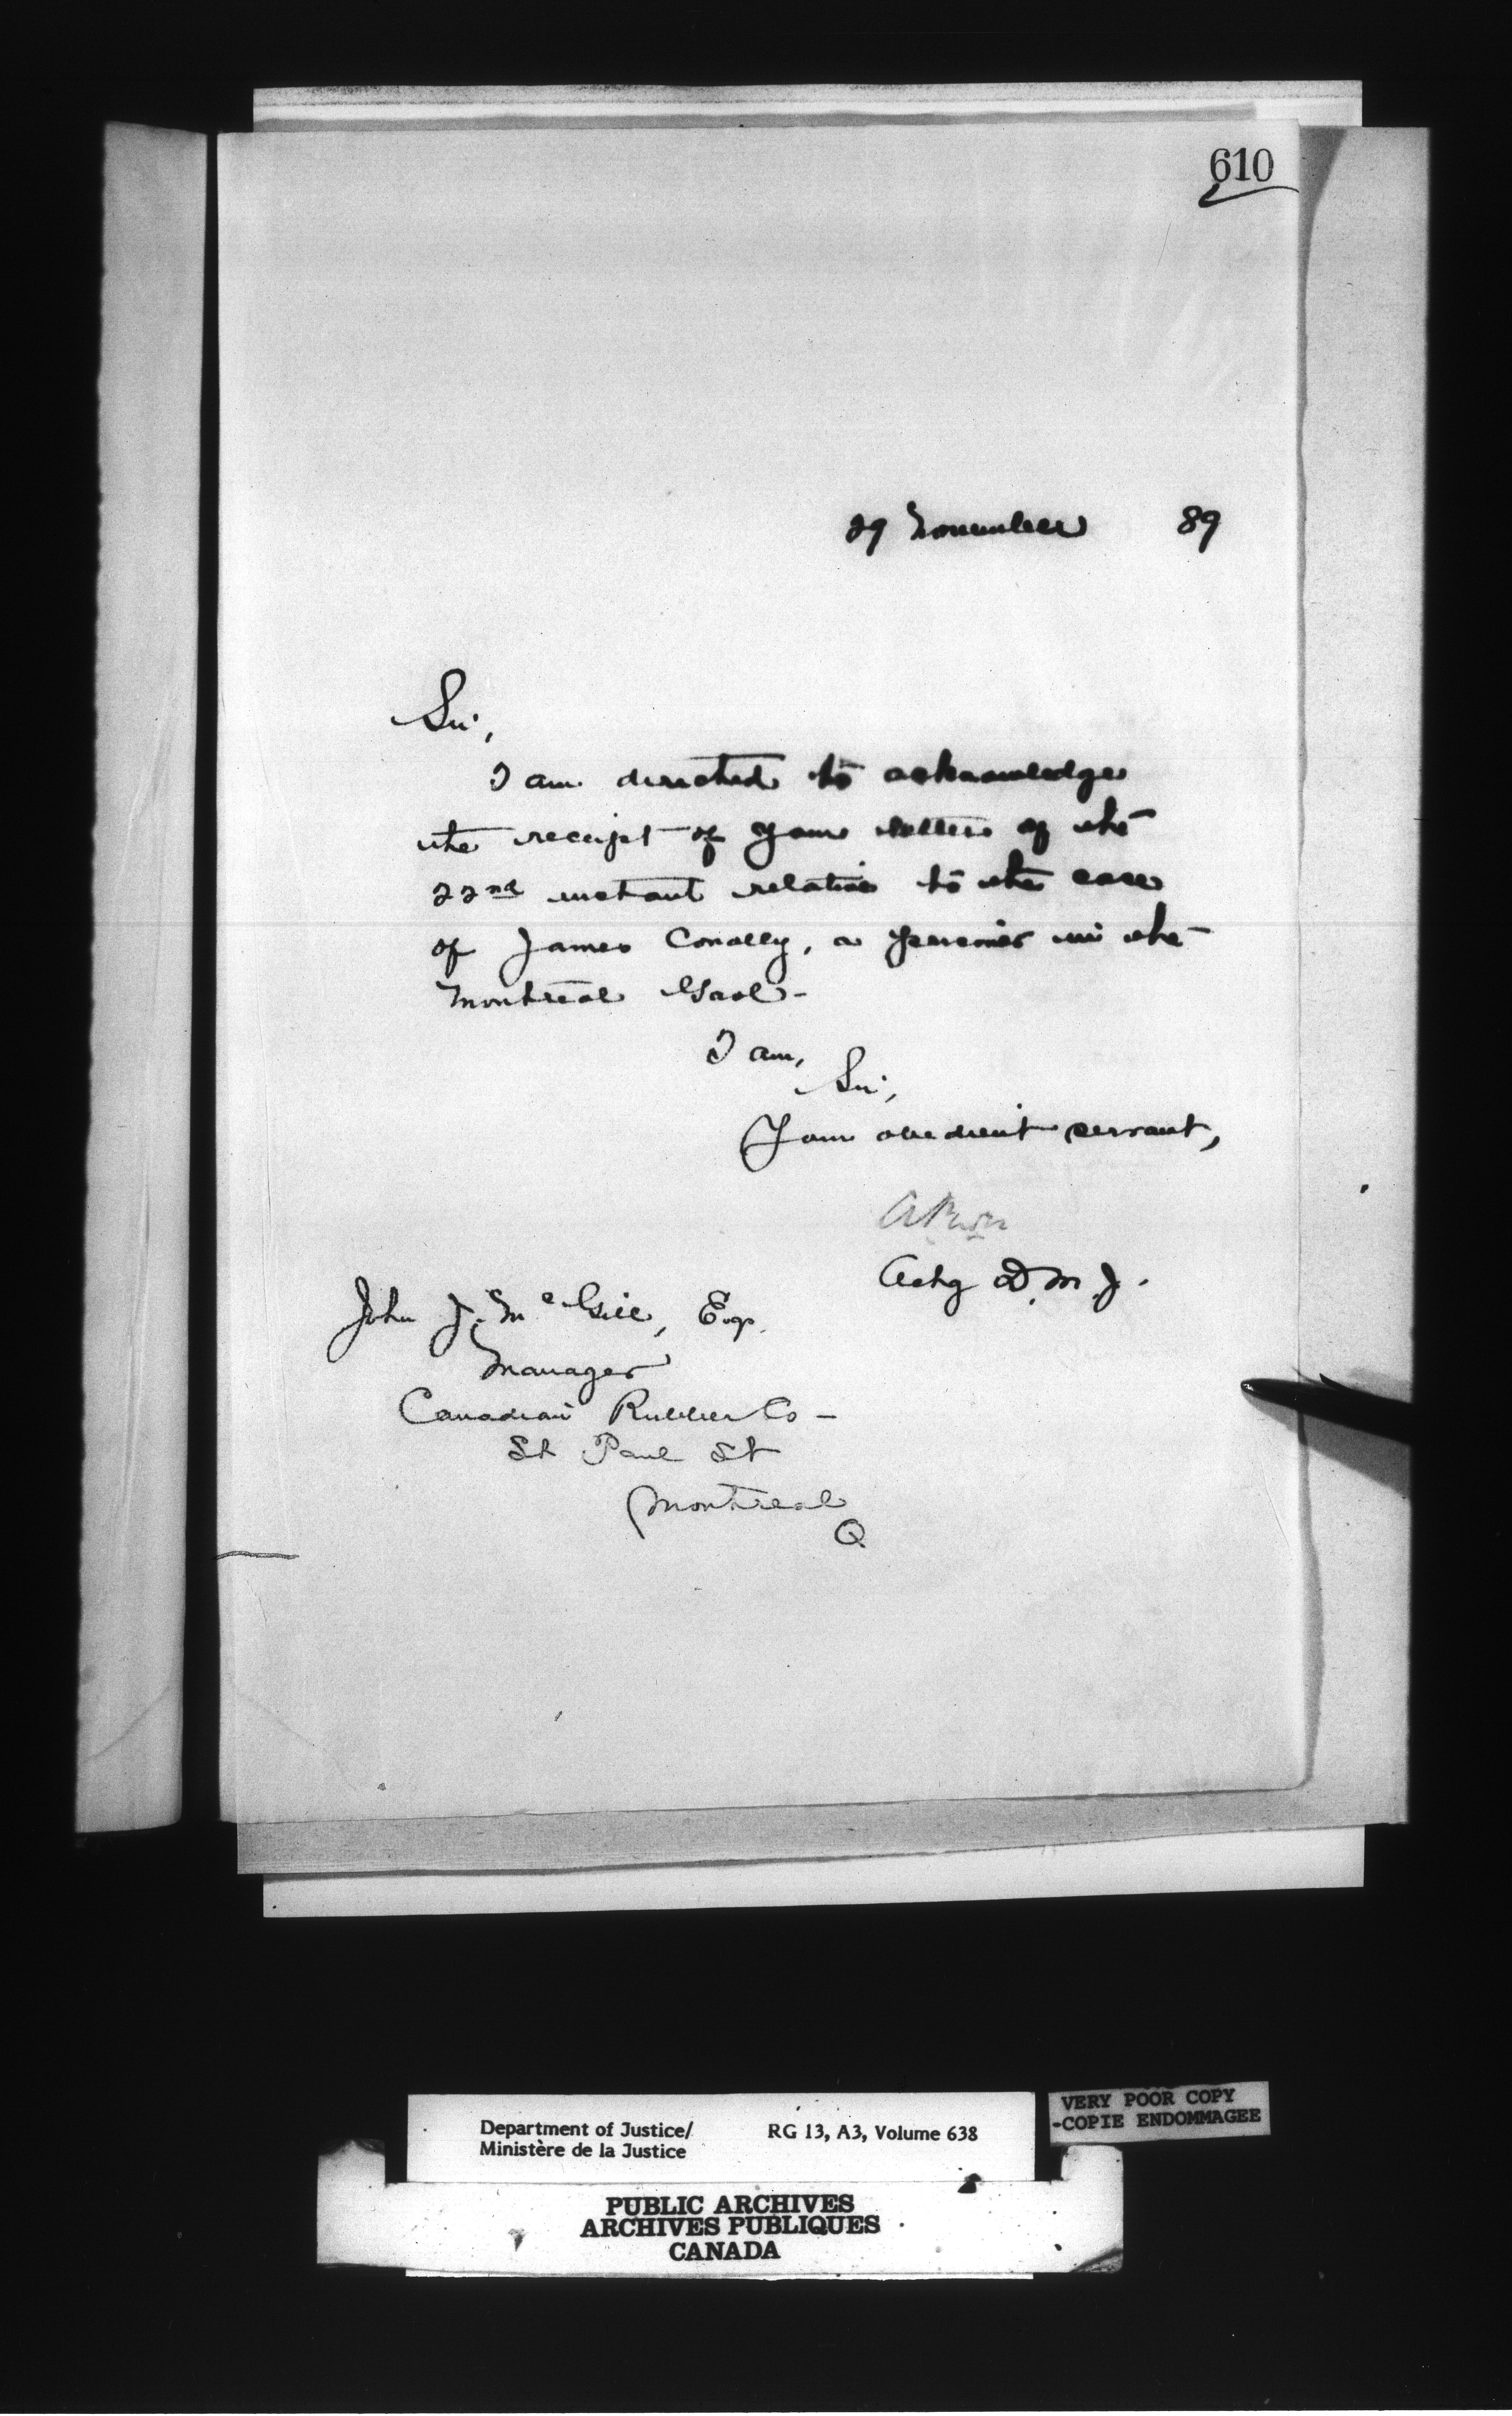 610
29 November 89
Sir,
I am directed to acknowledge
the receipt of your letter of the
22nd instant relative to the case
of James Conolly, a prisoner in the
Montreal Gaol-
I am,
Sir,
Your obedient servant,
Actg D. M. J.
John J. Mc Gill, Esq.
Manager
Canadian Rubber Co -
St Paul St
Montreal
Q
Department of Justice/
Ministère de la Justice
RG 13, A3, Volume 638
VERY POOR COPY
-COPIE ENDOMMAGEE
PUBLIC ARCHIVES
ARCHIVES PUBLIQUES
CANADA